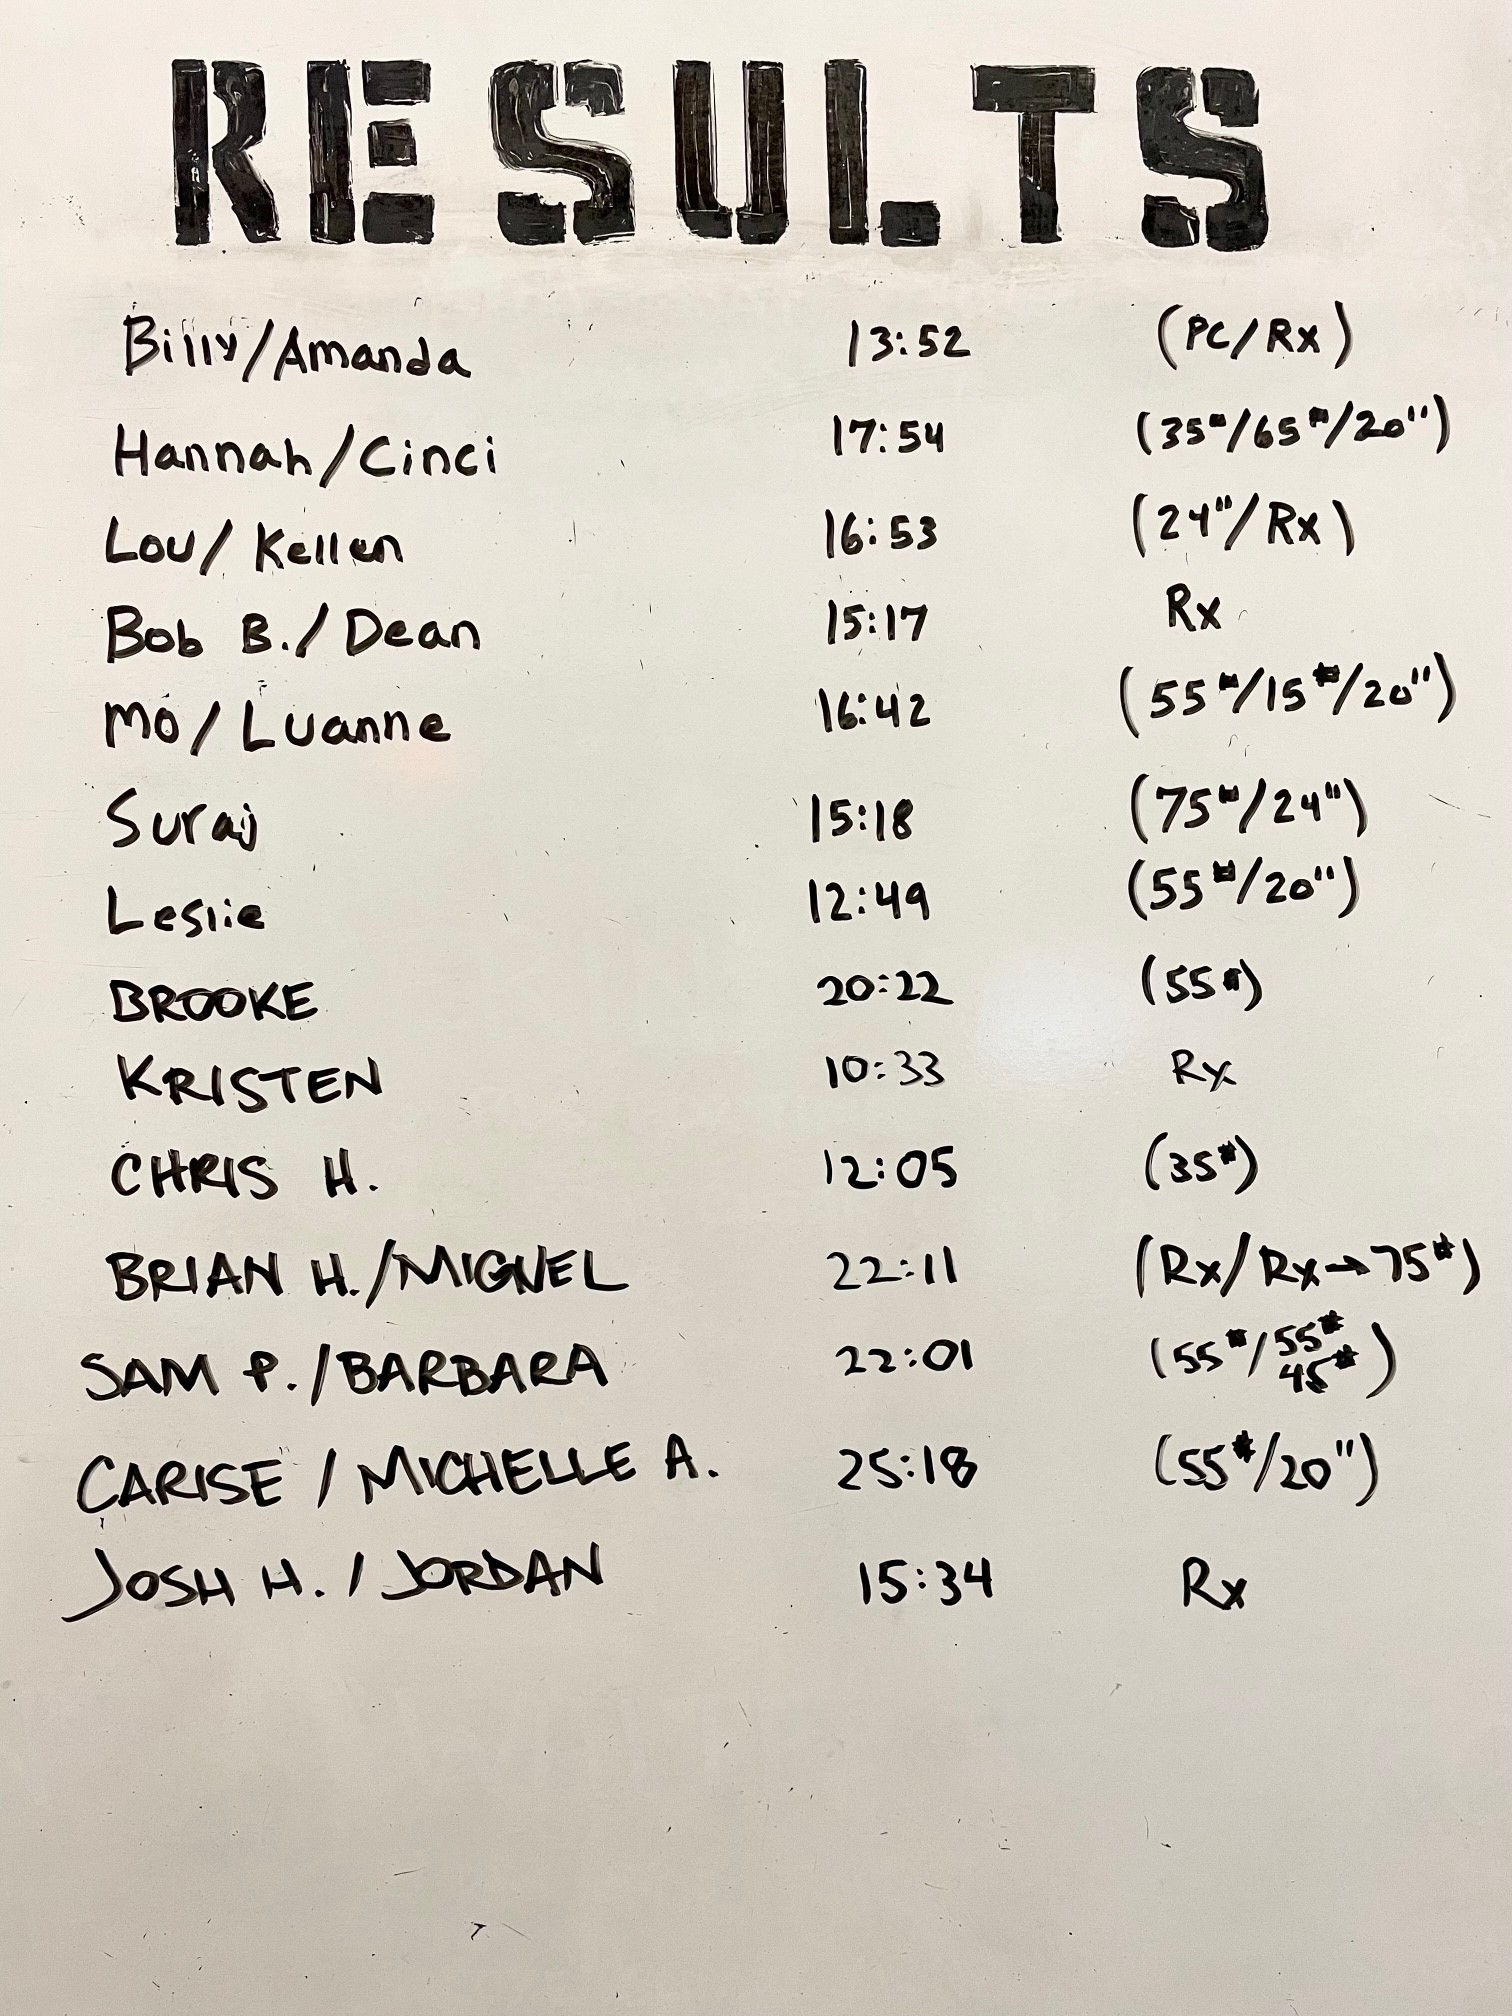 RESULTS
Billy/Amanda 13:52 (PC/Rx)
Hannah/Cinci 17:54 (35#/65#/20")
Lou/Kellen 16:53 (24"/Rx)
Bob B./Dean 15:17 Rx
Mo/Luanne 16:42 (55#/15#/20")
Suraj 15:18 (75#/24")
Leslie 12:49 (55#/20")
BROOKE 20:22 (55#)
KRISTEN 10:33 Rx
CHRIS H. 12:05 (35#)
BRIAN H./MIGUEL 22:11 (Rx/Rx→75#)
SAM P./BARBARA 22:01 (55#/55# 45#)
CARISE / MICHELLE A. 25:18 (55#/20")
JOSH H. / JORDAN 15:34 Rx